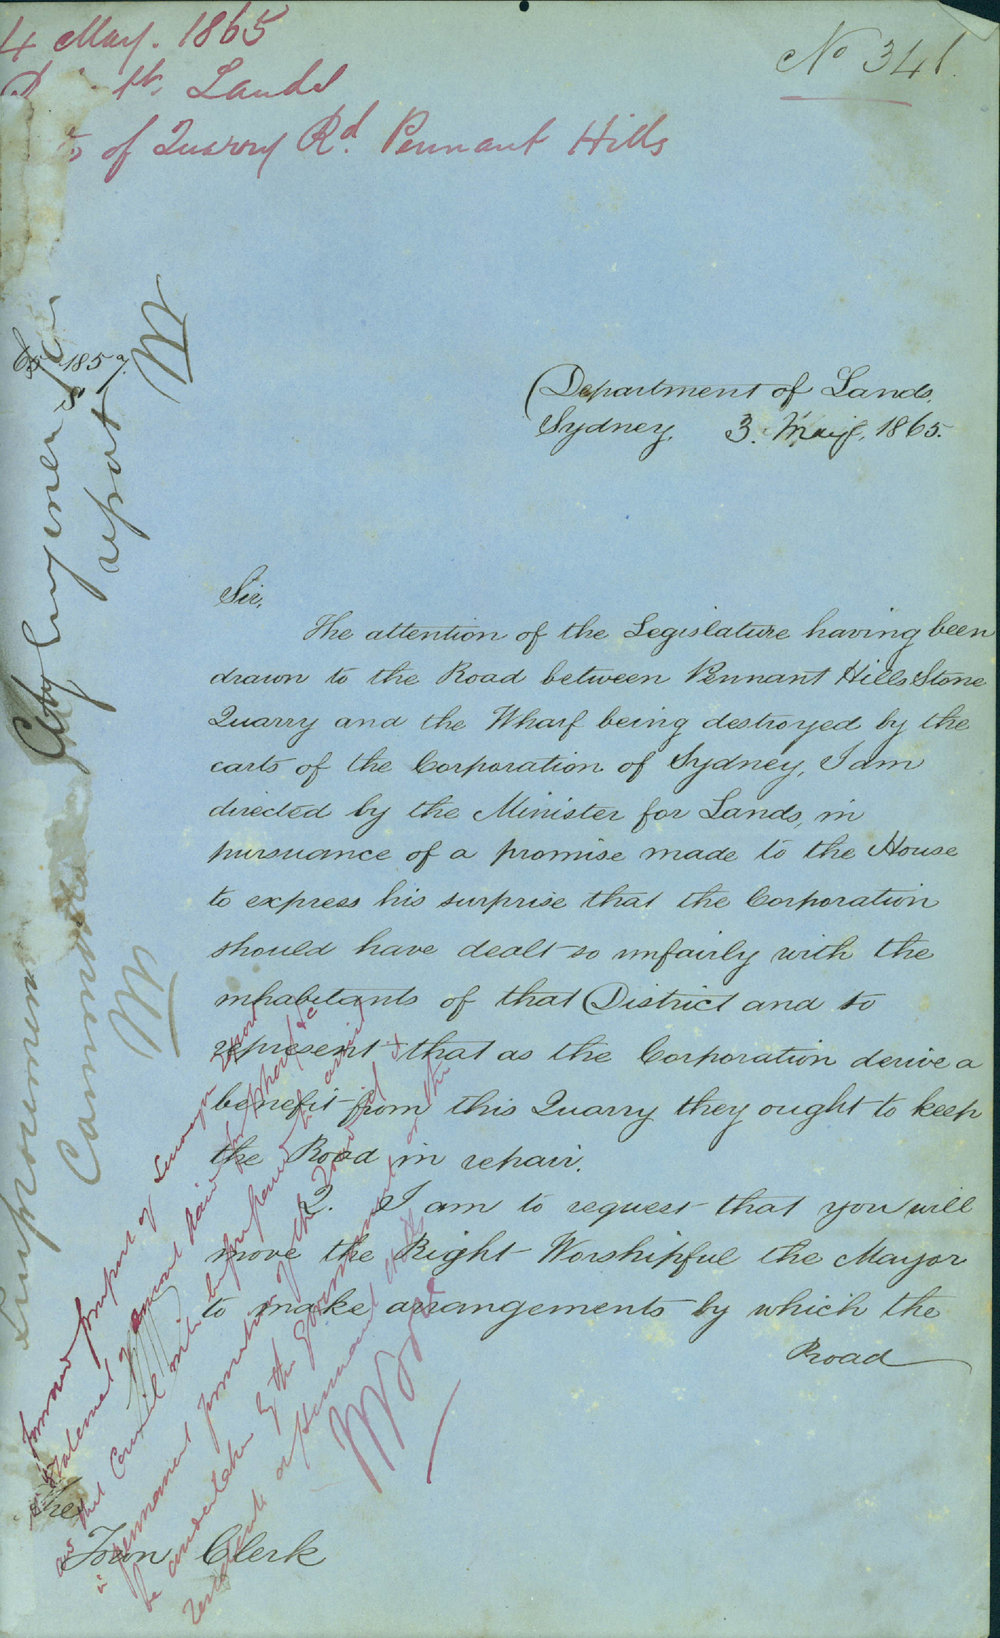 4 May. 1865
No 341.
Lands
of Quarry Rd. Pennant Hills
65 1857.
Department of Lands.
Sydney, 3. May, 1865.
City Engineer for
report
Sir,
The attention of the Legislature having been
drawn to the Road between Pennant Hills Stone
Quarry and the Wharf being destroyed by the
carts of the Corporation of Sydney, I am
directed by the Minister for Lands, in
pursuance of a promise made to the House
to express his surprise that the Corporation
should have dealt so unfairly with the
inhabitants of that District and to
represent that as the Corporation derive a
benefit from this Quarry they ought to keep
the Road in repair.
2. I am to request that you will
move the Right Worshipful the Mayor
to make arrangements by which the
Road
Improvement
Committee
Forward
of Surveyors report
statement of amount paid for
as this Council
a permanent formation of the Road
be undertaken by the Government or the
The
Town Clerk